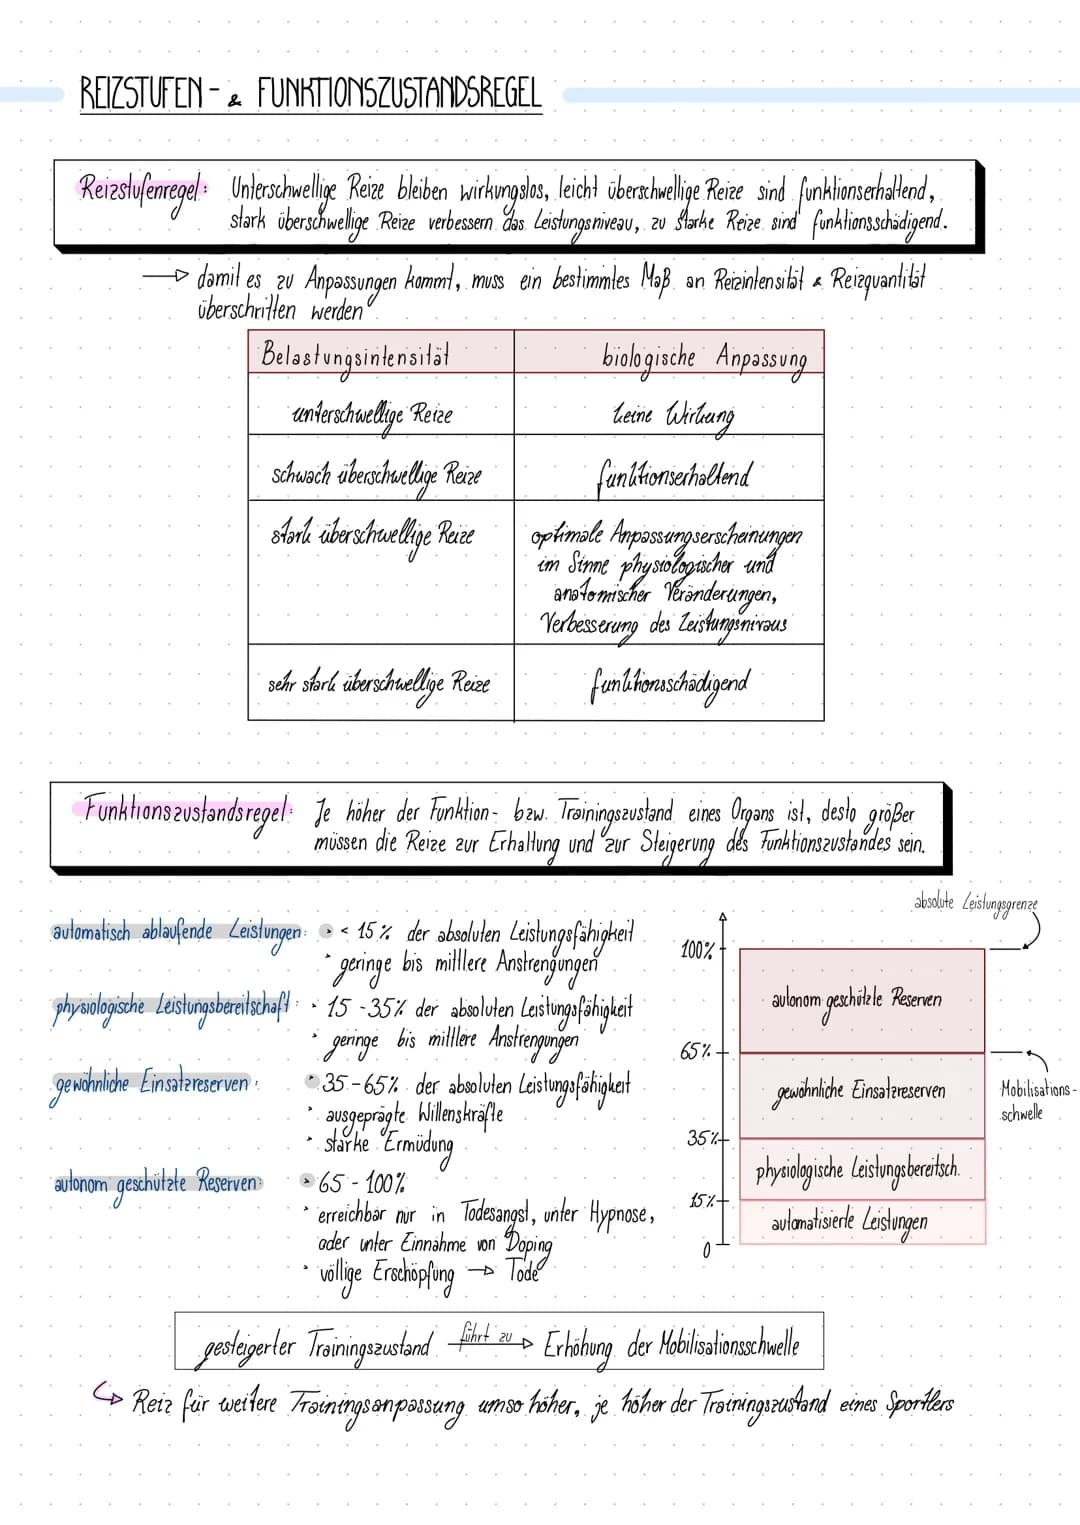 REIZSTUFEN- & FUNKTIONSZUSTANDSREGEL
Reizstufenregel: Unterschwellige Reize bleiben wirkungslos, leicht überschwellige Reize sind funktionserhaltend,
stark überschwellige Reize verbessern das Leistungsniveau, zu starke Reize sind funktionsschädigend.
→ damit es zu Anpassungen kommt, muss ein bestimmtes Maß an Reizintensität & Reizquantität
überschritten werden
Belastungsintensität biologische Anpassung
unterschwellige Reize keine Wirkung
schwach überschwellige Reize funktionserhaltend
stark überschwellige Reize optimale Anpassungserscheinungen
im Sinne physiologischer und
anatomischer Veränderungen,
Verbesserung des Leistungsnivaus
sehr stark überschwellige Reize funktionsschädigend
Funktionszustandsregel: Je höher der Funktion- bzw. Trainingszustand eines Organs ist, desto größer
müssen die Reize zur Erhaltung und zur Steigerung des Funktionszustandes sein.
automatisch ablaufende Leistungen: • < 15% der absoluten Leistungsfähigkeit
• geringe bis mittlere Anstrengungen
physiologische Leistungsbereitschaft: • 15-35% der absoluten Leistungsfähigkeit
• geringe bis mittlere Anstrengungen
gewöhnliche Einsatzreserven: • 35-65% der absoluten Leistungsfähigkeit
• ausgeprägte Willenskräfte
• starke Ermüdung
autonom geschützte Reserven: • 65-100%
• erreichbar nur in Todesangst, unter Hypnose,
oder unter Einnahme von Doping
• völlige Erschöpfung → Tode
absolute Leistungsgrenze
100%
autonom geschützte Reserven
65%
gewöhnliche Einsatzreserven
Mobilisations-
schwelle
35%
physiologische Leistungsbereitsch.
15%
automatisierte Leistungen
0
gesteigerter Trainingszustand führt zu → Erhöhung der Mobilisationsschwelle
↳ Reiz für weitere Trainingsanpassung umso höher, je höher der Trainingszustand eines Sportlers